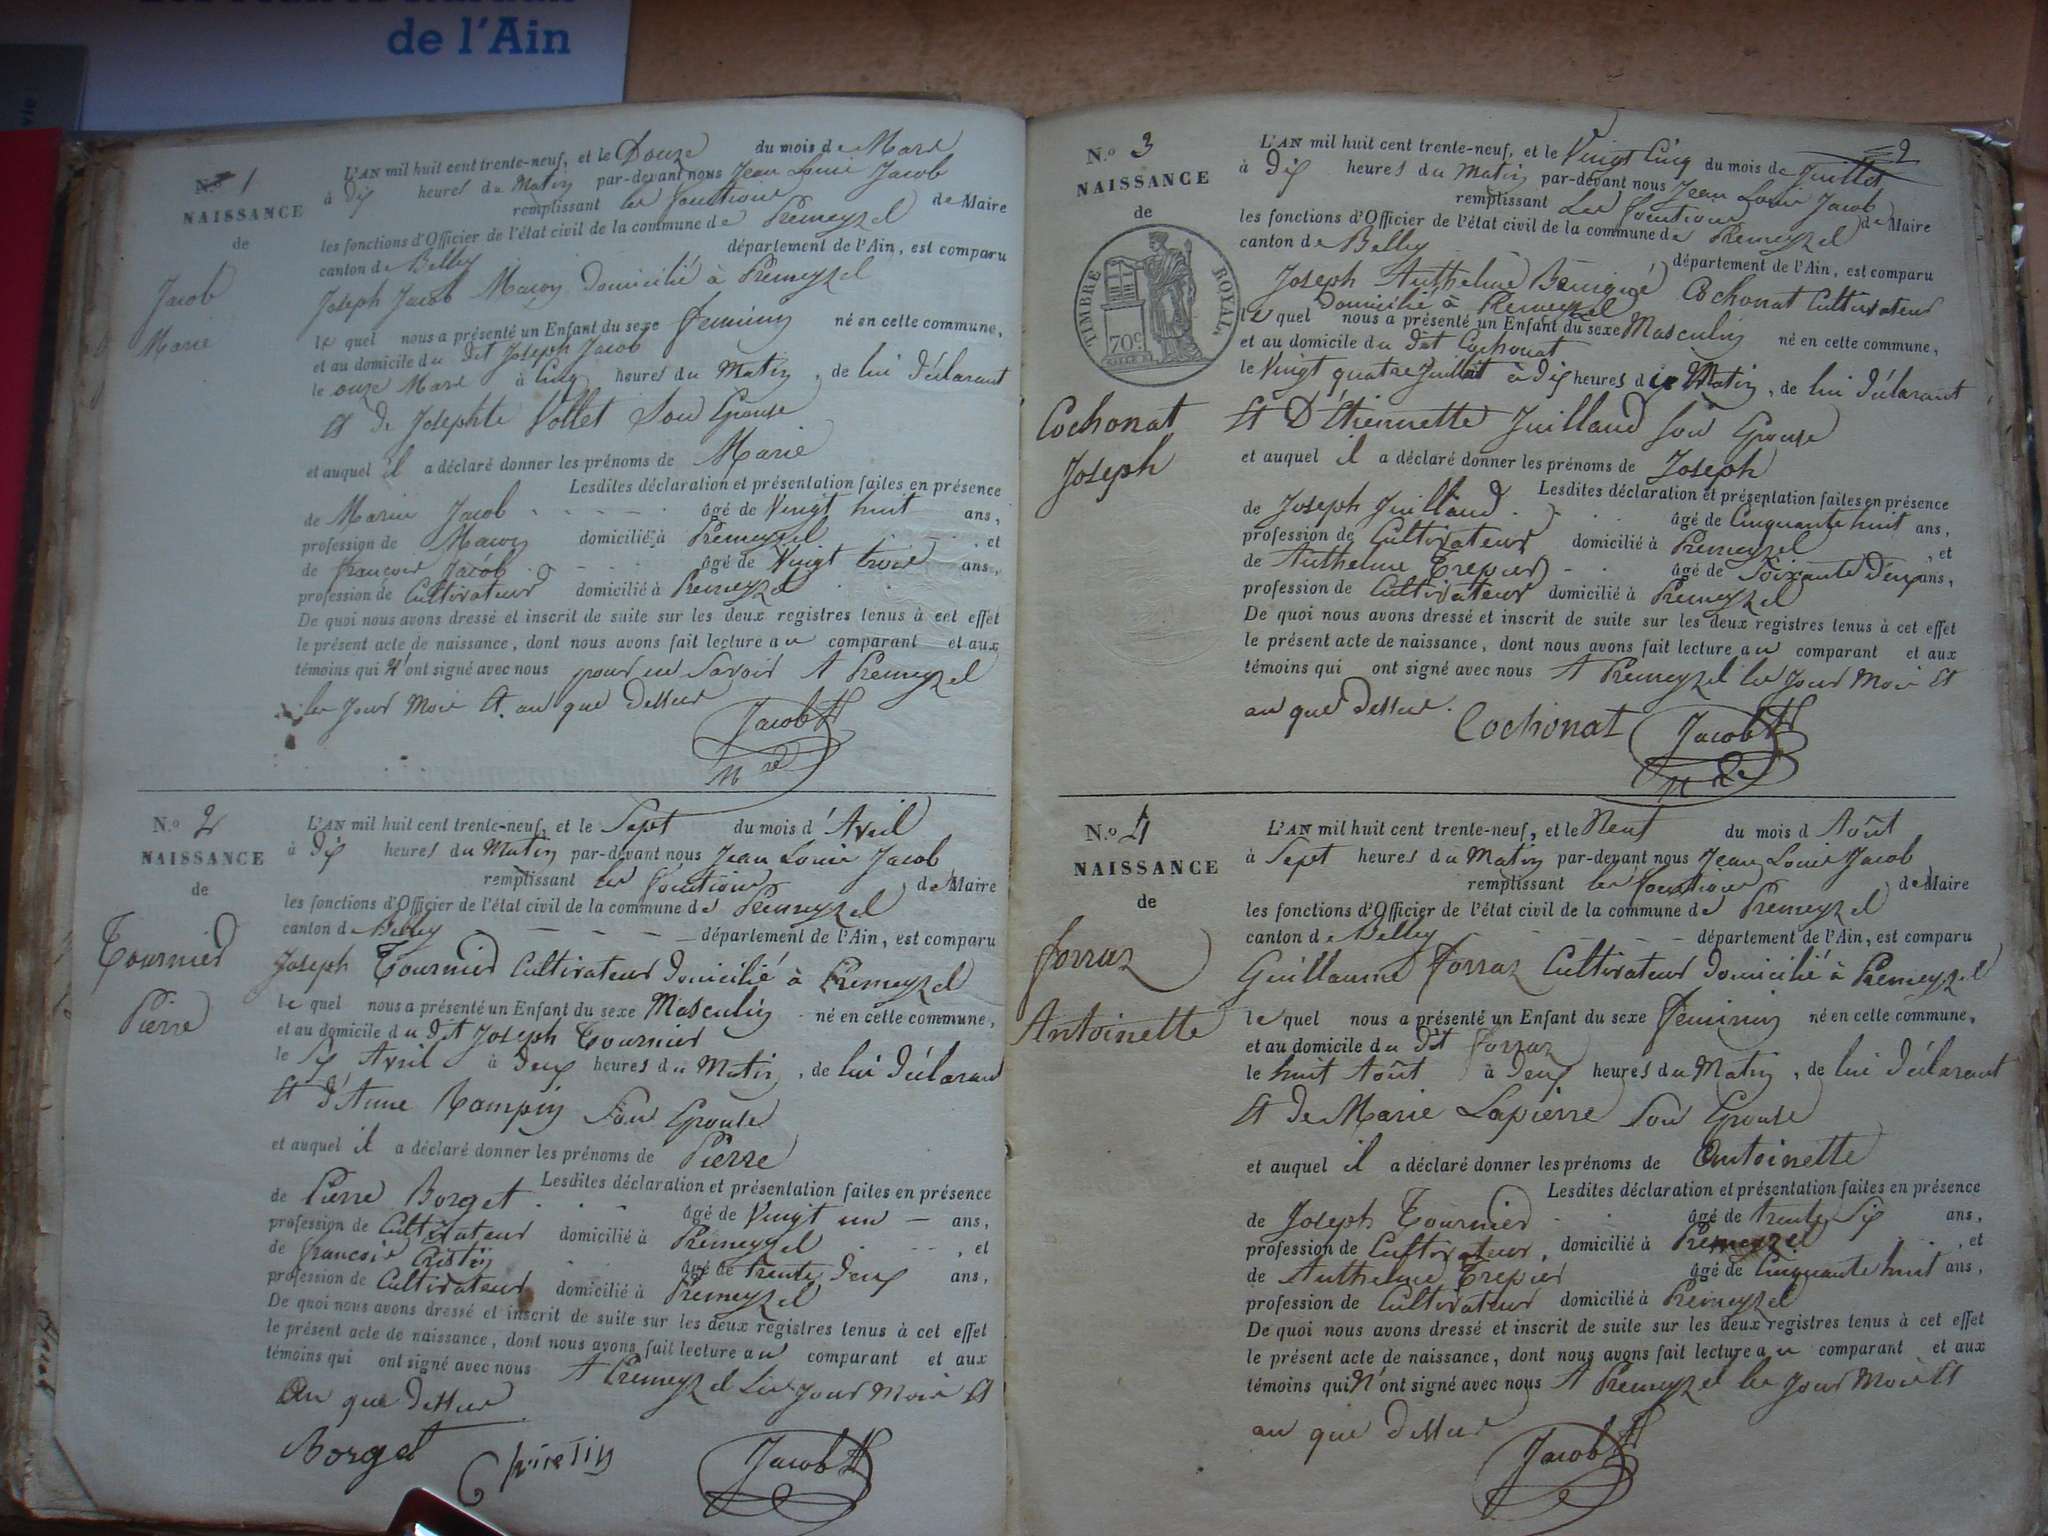 de l'Ain
N.º 1
NAISSANCE
de
Jacob
Marie
L'AN mil huit cent trente-neuf, et le Douze du mois de Mars
à Dix heures du Matin par-devant nous Jean Louis Jacob
remplissant les fonctions de Maire
les fonctions d'Officier de l'état civil de la commune de Premeyzel
canton de Belley département de l'Ain, est comparu
Joseph Jacob Maçon Domicilié à Premeyzel
le quel nous a présenté un Enfant du sexe feminin né en cette commune,
et au domicile du dit Joseph Jacob
le onze Mars à Cinq heures du Matin, de lui Déclarant
Et de Josephte Vollet Son Epouse
et auquel il a déclaré donner les prénoms de Marie
Lesdites déclaration et présentation faites en présence
de Marin Jacob âgé de Vingt huit ans,
profession de Maçon domicilié à Premeyzel, et
de françois Jacob âgé de Vingt trois ans,
profession de Cultivateur domicilié à Premeyzel
De quoi nous avons dressé et inscrit de suite sur les deux registres tenus à cet effet
le présent acte de naissance, dont nous avons fait lecture au comparant et aux
témoins qui n'ont signé avec nous pour ne Savoir A Premeyzel
les Jour Mois Et an que dessus
Jacob
N.º 2
NAISSANCE
de
Tournier
Pierre
L'AN mil huit cent trente-neuf, et le Sept du mois d'Avril
à Dix heures du Matin par-devant nous Jean Louis Jacob
remplissant les fonctions de Maire
les fonctions d'Officier de l'état civil de la commune de Premeyzel
canton de Belley département de l'Ain, est comparu
Joseph Tournier Cultivateur Domicilié à Premeyzel
le quel nous a présenté un Enfant du sexe Masculin né en cette commune,
et au domicile du dit Joseph Tournier
le Six Avril à Deux heures du Matin, de lui Déclarant
Et d'Anne Rampin Son Epouse
et auquel il a déclaré donner les prénoms de Pierre
Lesdites déclaration et présentation faites en présence
de Pierre Borget âgé de Vingt un ans,
profession de Cultivateur domicilié à Premeyzel, et
de françois âgé de trente Deux ans,
profession de Cultivateur domicilié à Premeyzel
De quoi nous avons dressé et inscrit de suite sur les deux registres tenus à cet effet
le présent acte de naissance, dont nous avons fait lecture au comparant et aux
témoins qui ont signé avec nous A Premeyzel Les Jour Mois Et
An que Dessus
Borget Jacob
2
N.º 3
NAISSANCE
de
TIMBRE ROYAL
70c
Cochonat
Joseph
L'AN mil huit cent trente-neuf, et le Vingt Cinq du mois de Juillet
à Dix heures du Matin par-devant nous Jean Louis Jacob
remplissant Les fonctions de Maire
les fonctions d'Officier de l'état civil de la commune de Premeyzel
canton de Belley département de l'Ain, est comparu
Joseph Anthelme Benigné Cochonat Cultivateur
Domicilié à Premeyzel
le quel nous a présenté un Enfant du sexe Masculin né en cette commune,
et au domicile du dit Cochonat
le Vingt quatre Juillet à Dix heures du Matin, de lui Déclarant
Et D'Etiennette Juilland Son Epouse
et auquel il a déclaré donner les prénoms de Joseph
Lesdites déclaration et présentation faites en présence
de Joseph Juilland âgé de Cinquante huit ans,
profession de Cultivateur domicilié à Premeyzel, et
de Anthelme Trepier âgé de Soixante Deux ans,
profession de Cultivateur domicilié à Premeyzel
De quoi nous avons dressé et inscrit de suite sur les deux registres tenus à cet effet
le présent acte de naissance, dont nous avons fait lecture au comparant et aux
témoins qui ont signé avec nous A Premeyzel les Jour Mois Et
an que dessus.
Cochonat Jacob
N.º 4
NAISSANCE
de
forraz
Antoinette
L'AN mil huit cent trente-neuf, et le Neuf du mois d Août
à Sept heures du Matin par-devant nous Jean Louis Jacob
remplissant les fonctions de Maire
les fonctions d'Officier de l'état civil de la commune de Premeyzel
canton de Belley département de l'Ain, est comparu
Guillaume forraz Cultivateur Domicilié à Premeyzel
le quel nous a présenté un Enfant du sexe feminin né en cette commune,
et au domicile du dit forraz
le huit Août à Deux heures du Matin, de lui Déclarant
Et de Marie Lapierre Son Epouse
et auquel il a déclaré donner les prénoms de Antoinette
Lesdites déclaration et présentation faites en présence
de Joseph Tournier âgé de trente Six ans,
profession de Cultivateur, domicilié à Premeyzel, et
de Anthelme Trepier âgé de Cinquante huit ans,
profession de Cultivateur domicilié à Premeyzel
De quoi nous avons dressé et inscrit de suite sur les deux registres tenus à cet effet
le présent acte de naissance, dont nous avons fait lecture au comparant et aux
témoins qui N'ont signé avec nous A Premeyzel les Jour Mois Et
an que dessus
Jacob